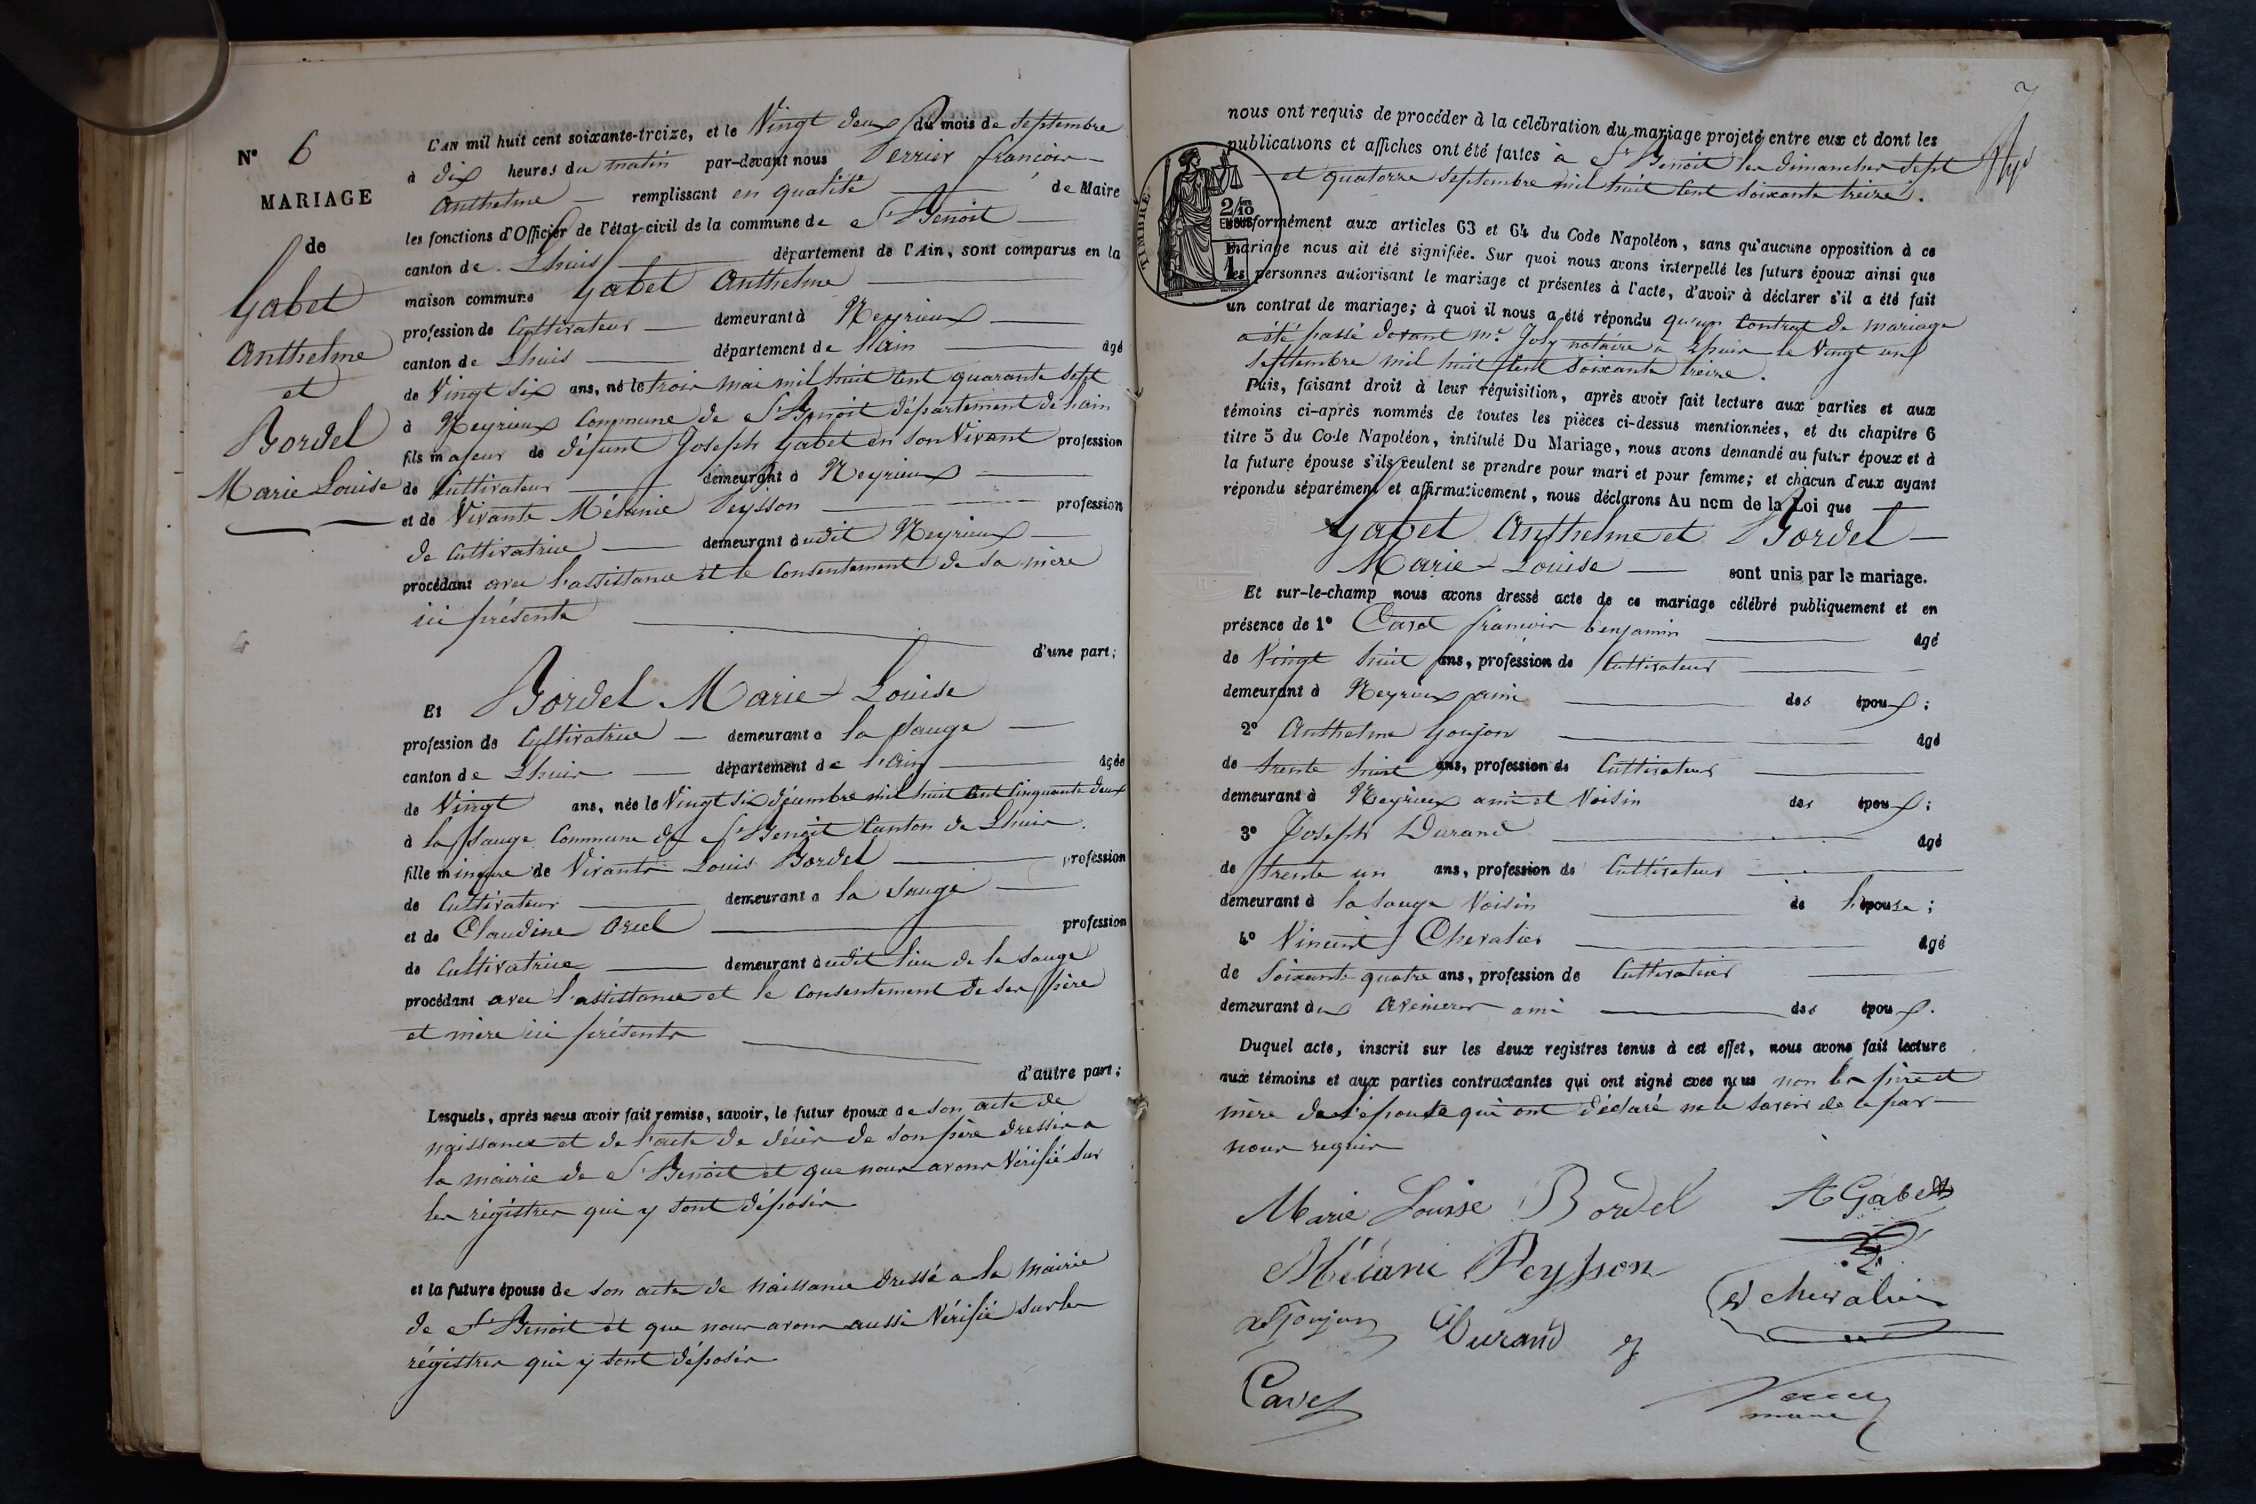 N° 6
MARIAGE
de
Gabet
Anthelme
et
Bordel
Marie Louise
L'AN mil huit cent soixante-treize, et le Vingt deux du mois de septembre
à dix heures du matin par-devant nous Perrier françois
Anthelme remplissant en qualité de Maire
les fonctions d'Officier de l'état-civil de la commune de St Benoit
canton de Lhuis département de l'Ain, sont comparus en la
maison commune Gabet Anthelme
profession de Cultivateur demeurant à Meyrieux
canton de Lhuis département de l'ain âgé
de Vingt six ans, né le trois mai mil huit cent quarante sept
à Meyrieux Commune de St Benoit département de l'ain
fils majeur de défunt Joseph Gabet en son Vivant profession
de Cultivateur demeurant à Meyrieux
et de Vivante Mélanie Peysson profession
de Cultivatrice demeurant à udit Meyrieux
procédant avec l'assistance et le Consentement de sa mère
ici présente
d'une part;
Et Bordel Marie Louise
profession de Cultivatrice demeurant à la Sauge
canton de Lhuis département de l'ain âgée
de Vingt ans, née le Vingt six décembre mil huit cent Cinquante deux
à la Sauge Commune de St Benoit Canton de Lhuis.
fille mineure de Vivants Louis Bordel profession
de Cultivateur demeurant à la Sauge
et de Claudine profession
de Cultivatrice demeurant à udit lieu de la Sauge
procédant avec l'assistance et le Consentement de ses père
et mère ici présents
d'autre part;
Lesquels, après nous avoir fait remise, savoir, le futur époux de son acte de
naissance et de l'acte de décès de son père dressés a
la mairie de St Benoit et que nous avons Vérifié sur
les régistres qui y sont déposés
et la future épouse de son acte de naissance dressé a la Mairie
de St Benoit et que nous avons aussi Vérifié sur les
régistres qui y sont déposés
7
nous ont requis de procéder à la célébration du mariage projeté entre eux et dont les
publications et affiches ont été faites à St Benoit les dimanches sept
et quatorze septembre mil huit Cent soixante treize.
TIMBRE
2/10
EN SUS
Conformément aux articles 63 et 64 du Code Napoléon, sans qu'aucune opposition à ce
mariage nous ait été signifiée. Sur quoi nous avons interpellé les futurs époux ainsi que
les personnes autorisant le mariage et présentes à l'acte, d'avoir à déclarer s'il a été fait
un contrat de mariage; à quoi il nous a été répondu qu'un Contrat de mariage
a été passé devant Me Joly notaire a Lhuis le Vingt un
septembre mil huit Cent soixante treize.
Puis, faisant droit à leur réquisition, après avoir fait lecture aux parties et aux
témoins ci-après nommés de toutes les pièces ci-dessus mentionnées, et du chapitre 6
titre 5 du Code Napoléon, intitulé Du Mariage, nous avons demandé au futur époux et à
la future épouse s'ils veulent se prendre pour mari et pour femme; et chacun d'eux ayant
répondu séparément et affirmativement, nous déclarons Au nom de la Loi que
Gabet Anthelme et Bordel
Marie Louise sont unis par le mariage.
Et sur-le-champ nous avons dressé acte de ce mariage célébré publiquement et en
présence de 1° Cavet francois benjamin âgé
de Vingt huit ans, profession de Cultivateur
demeurant à Meyrieux ami des époux;
2° Anthelme Goujon âgé
de trente huit ans, profession de Cultivateur
demeurant à Meyrieux ami et Voisin des époux;
3° Joseph Durand âgé
de trente un ans, profession de Cultivateur
demeurant à la Sauge Voisin de l'épouse;
4° Vincent Chevalier âgé
de Soixante quatre ans, profession de Cultivateur
demeurant à ux ami des époux.
Duquel acte, inscrit sur les deux registres tenus à cet effet, nous avons fait lecture
aux témoins et aux parties contractantes qui ont signé avec nous non les père et
mère de l'épouse qui ont déclaré ne le savoir de ce par
nous requis
Marie Louise Bordel A Gabet
Mélani Peysson
chevalier
Goujon Durand
Cavet
maire